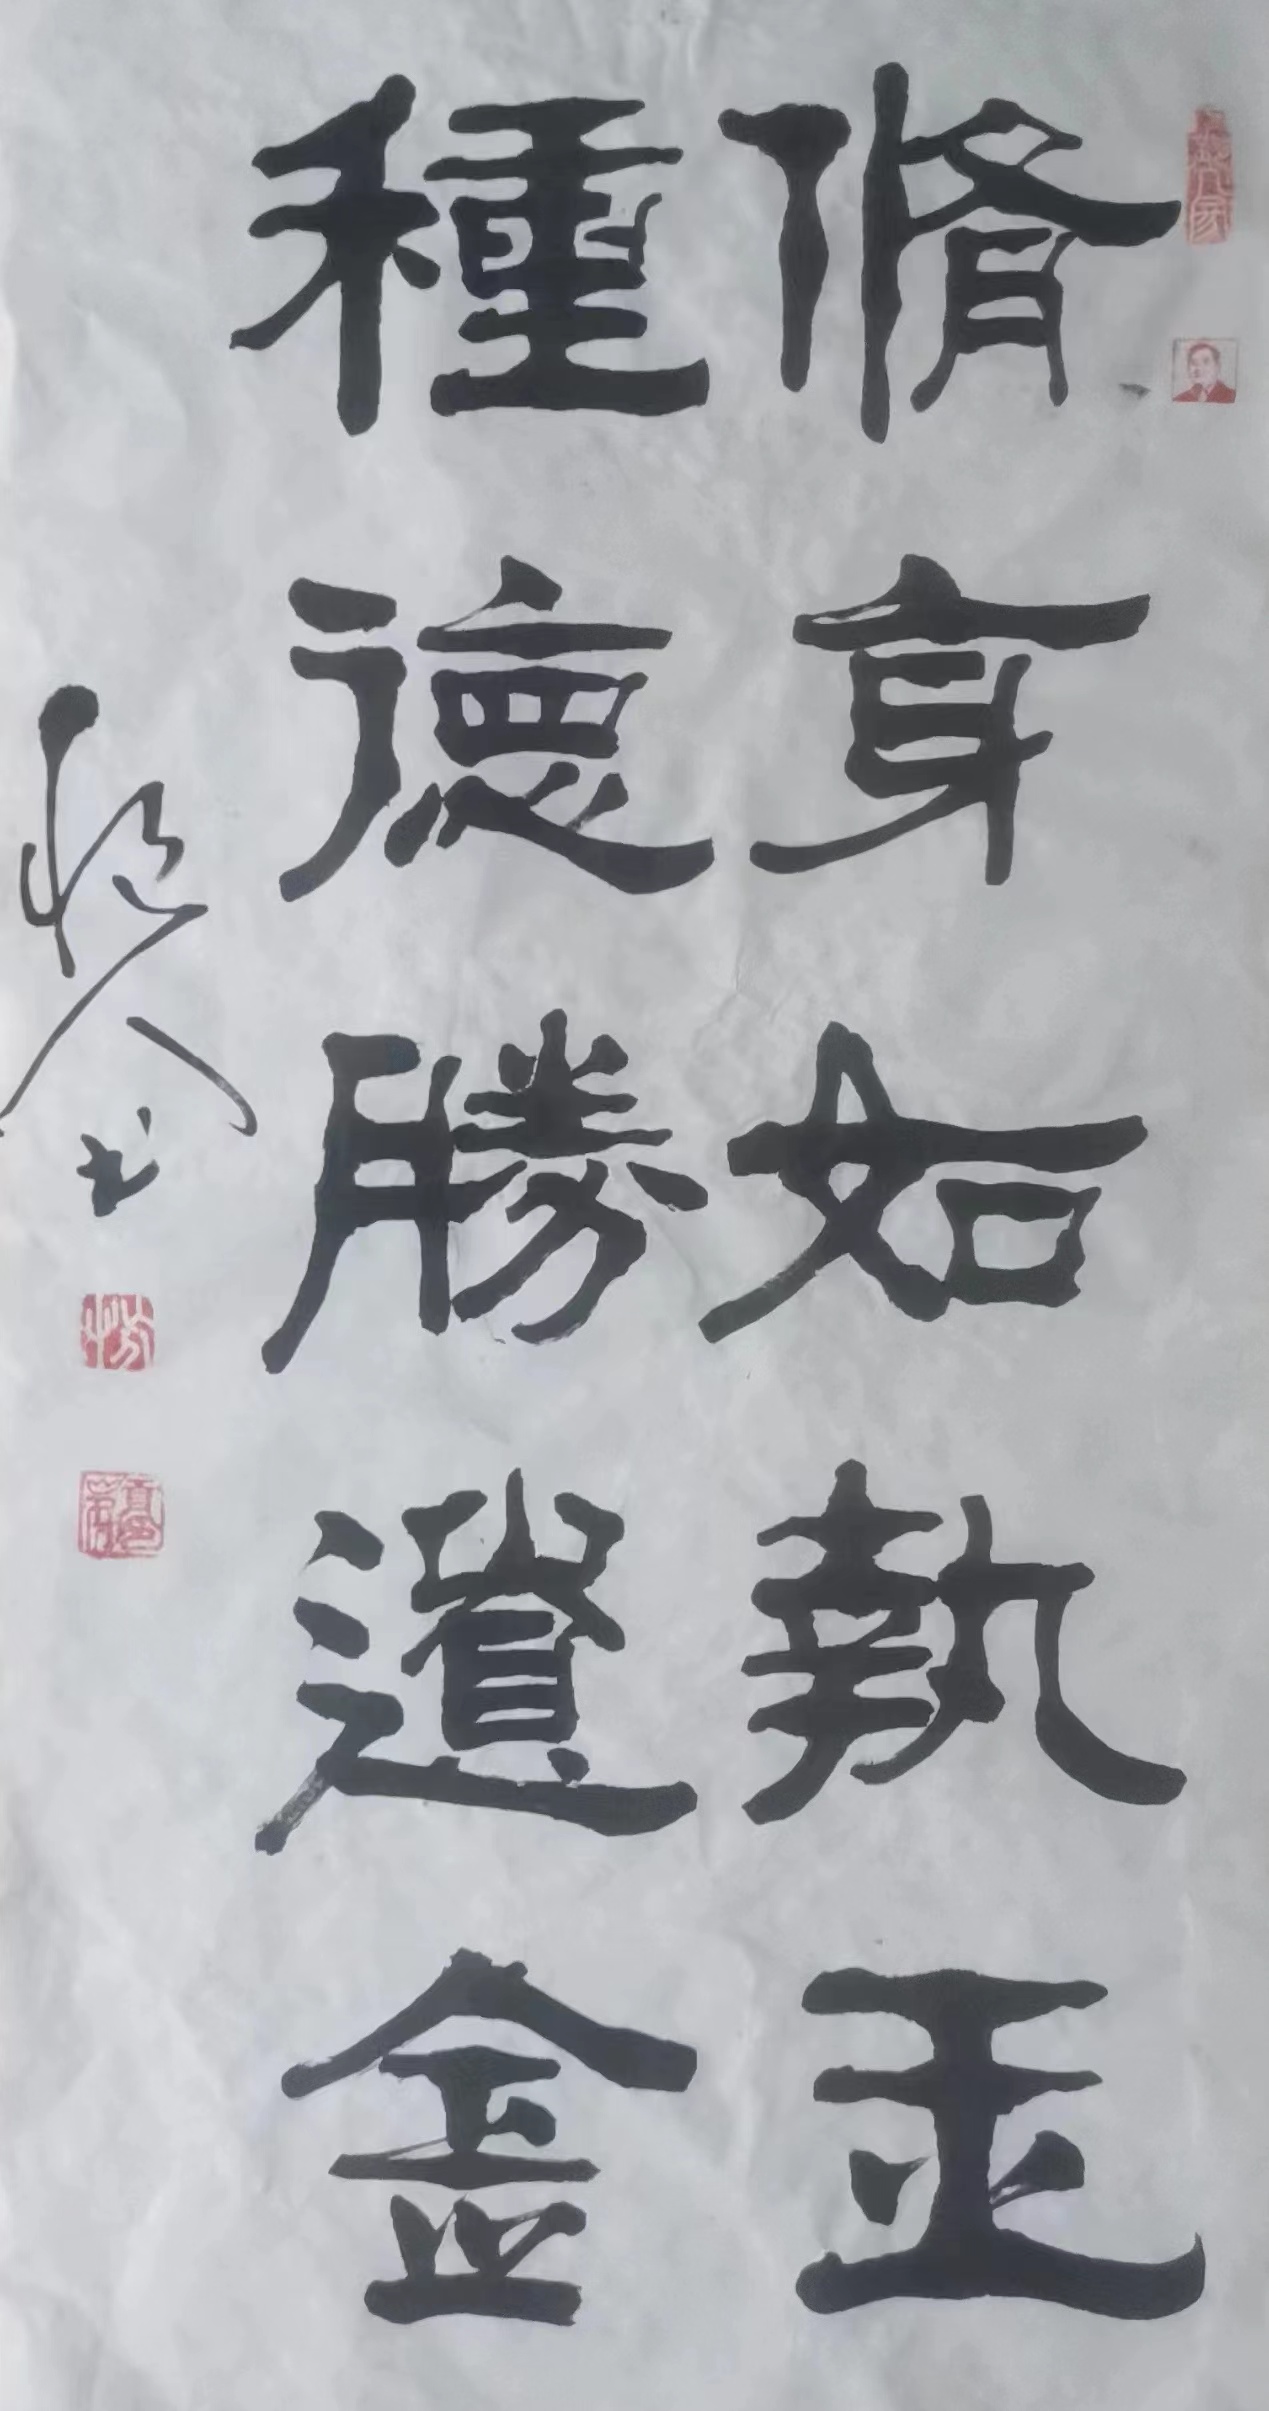 脩身如執玉
種德勝遺金